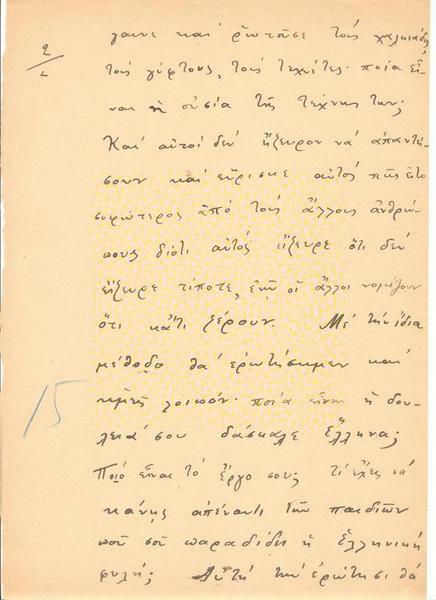 2/2
γαινε καὶ ἐρωτοῦσε τούς χαλκιάδες
τούς γύφτους, τούς τεχνίτες· ποία εἶ-
ναι ἡ οὐσία τῆς τέχνης των;
Καί αὐτοί δέν ἤξευρον νά ἀπαντή-
σουν καί εὕρισκε αὐτός πώς εἶτο
σοφώτερος ἀπό τούς ἄλλους ἀνθρώ-
πους διότι αὐτός εἴξευρε ὅτι δέν
εἴξευρε τίποτε, ἐνῷ οἱ ἄλλοι νομίζουν
ὅτι κάτι ξέρουν. Μέ τήν ἴδια
μέθοδο θά ἐρωτήσωμεν καί
ἡμεῖς λοιπόν· ποία εἶναι ἡ δου-
λειά σου δάσκαλε Ἕλληνα;
Ποιό εἶναι τό ἔργο σου; τί ἔχεις νά
κάνῃς ἀπέναντι τῶν παιδιῶν
15
ποῦ σοῦ παραδίδει ἡ Ἑλληνική
φυλή; Αὐτή τήν ἐρώτησι θά